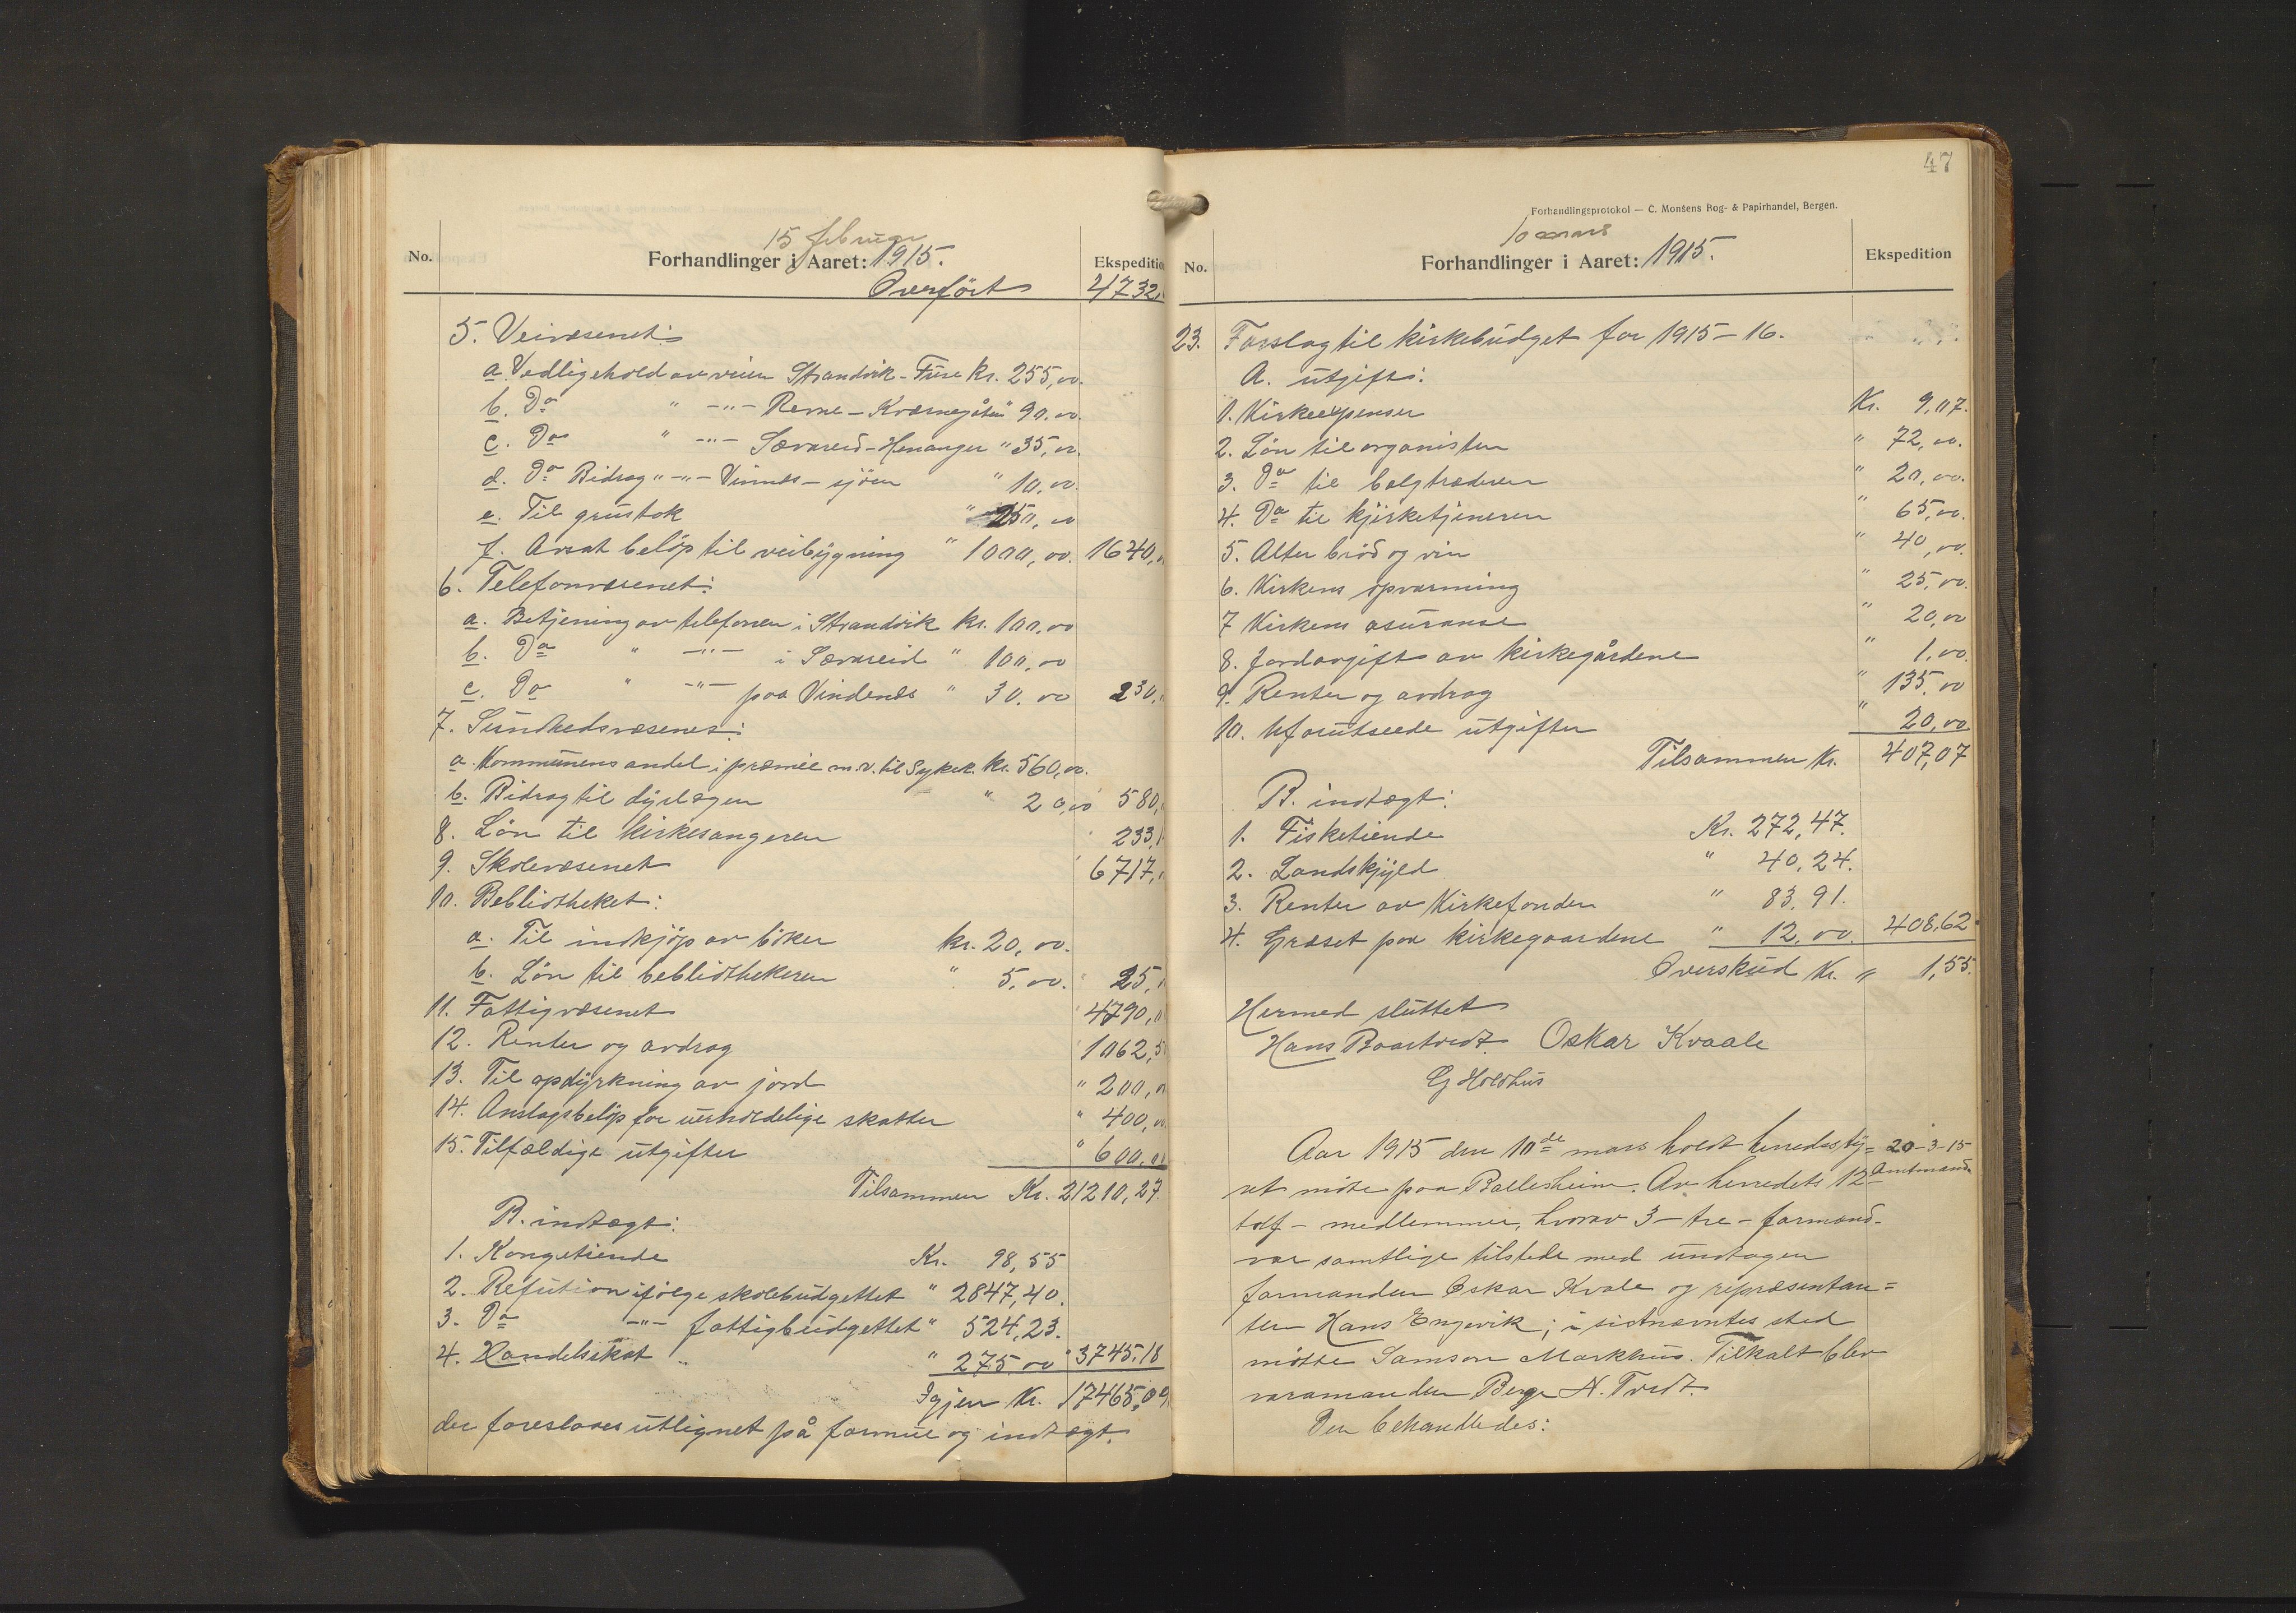 15 februar
No.
Forhandlinger i Aaret: 1915.
Ekspedition
Overført 4732,
5. Veivæsenet:
a. Vedligehold av veien Strandvik - Fuse Kr. 255,00.
b. Do " -"- Revne - Kvernegåten " 90.00.
c. Do " -"- Sævareid - Henanger " 35,00.
d. Do Bidrag " -"- Vinnes - sjöen " 10,00.
e. Til grustak " 250,00
f. Avsat beløp til veibygning " 1000,00. 1640,
6. Telefonvæsenet:
a. Betjening av telefonen i Strandvik Kr. 100.00
b. Do " -"- i Sævareid " 100,00
c. Do " -"- paa Vindenes " 30.00 230,
7. Sundhedsvæsenet:
a. Kommunens andel i præmie m.v. til Sykek. Kr. 560,00.
b. Bidrag til dyrlægen " 20,00 580,
8. Løn til kirkesangeren 233,
9. Skolevæsenet 6717,
10. Bebliotheket:
a. Til indkjøp av bøker kr. 20,00.
b. Løn til bebliothekeren " 5,00. 25,
11. Fattigvæsenet 4790,
12. Renter og avdrag 1062,5
13. Til opdyrkning av jord " 200,0
14. Anslagsbeløp for uerholdelige skatter " 400,00
15. Tilfældige utgifter " 600.00
Tilsammen Kr. 21210,27.
B. indtægt:
1. Kongetiende Kr. 98,55
2. Refution ifølge skolebudgettet " 2847,40.
3. Do -"- fattigbudgettet " 524,23.
4. Handelsskat " 275.00 " 3745.18
Igjen Kr. 17465,09
der foreslaaes utlignet på formue og indtægt.
47
Forhandlingsprotokol — C. Monsens Bog- & Papirhandel, Bergen.
10 mars
No.
Forhandlinger i Aaret: 1915.
Ekspedition
23. Forslag til kirkebudget for 1915-16.
A. utgift:
1. Kirkeexpenser Kr. 9,07.
2. Løn til organisten " 72,00.
3. Do til belgtræderen " 20,00.
4. Do til kjirketjeneren " 65,00.
5. Alter brød og vin " 40,00.
6. Kirkens opvarming " 25,00.
7 Kirkens asuranse " 20,00
8. Jordavgift av kirkegårdene " 1,00.
9. Renter og avdrag " 135,00
10. Uforutseede utgifter " 20,00
Tilsammen Kr. 407,07
B. indtægt:
1. Fisketiende Kr. 272,47.
2. Landskjyld " 40,24.
3. Renter av Kirkefonden " 83,91.
4. Græset paa kirkegaardene " 12,00. 408,62
Overskud Kr. " 1,55.
Hermed sluttet
Hans Baartvedt. Oskar Kvaale
G Holdhus
Aar 1915 den 10de mars holdt herredssty= 20-3-15
ret møte paa Ballesheim. Av herredets 12- Amtmand
tolf - medlemmer, hvorav 3 - tre - formænd-
var samtlige tilstede med undtagen
formanden Oskar Kvale og repræsentan=
ten Hans Engevik; i sistnævntes sted
møtte Samson Markhus. Tilkalt blev
varamanden Berge N. Tvedt.
Der behandledes: